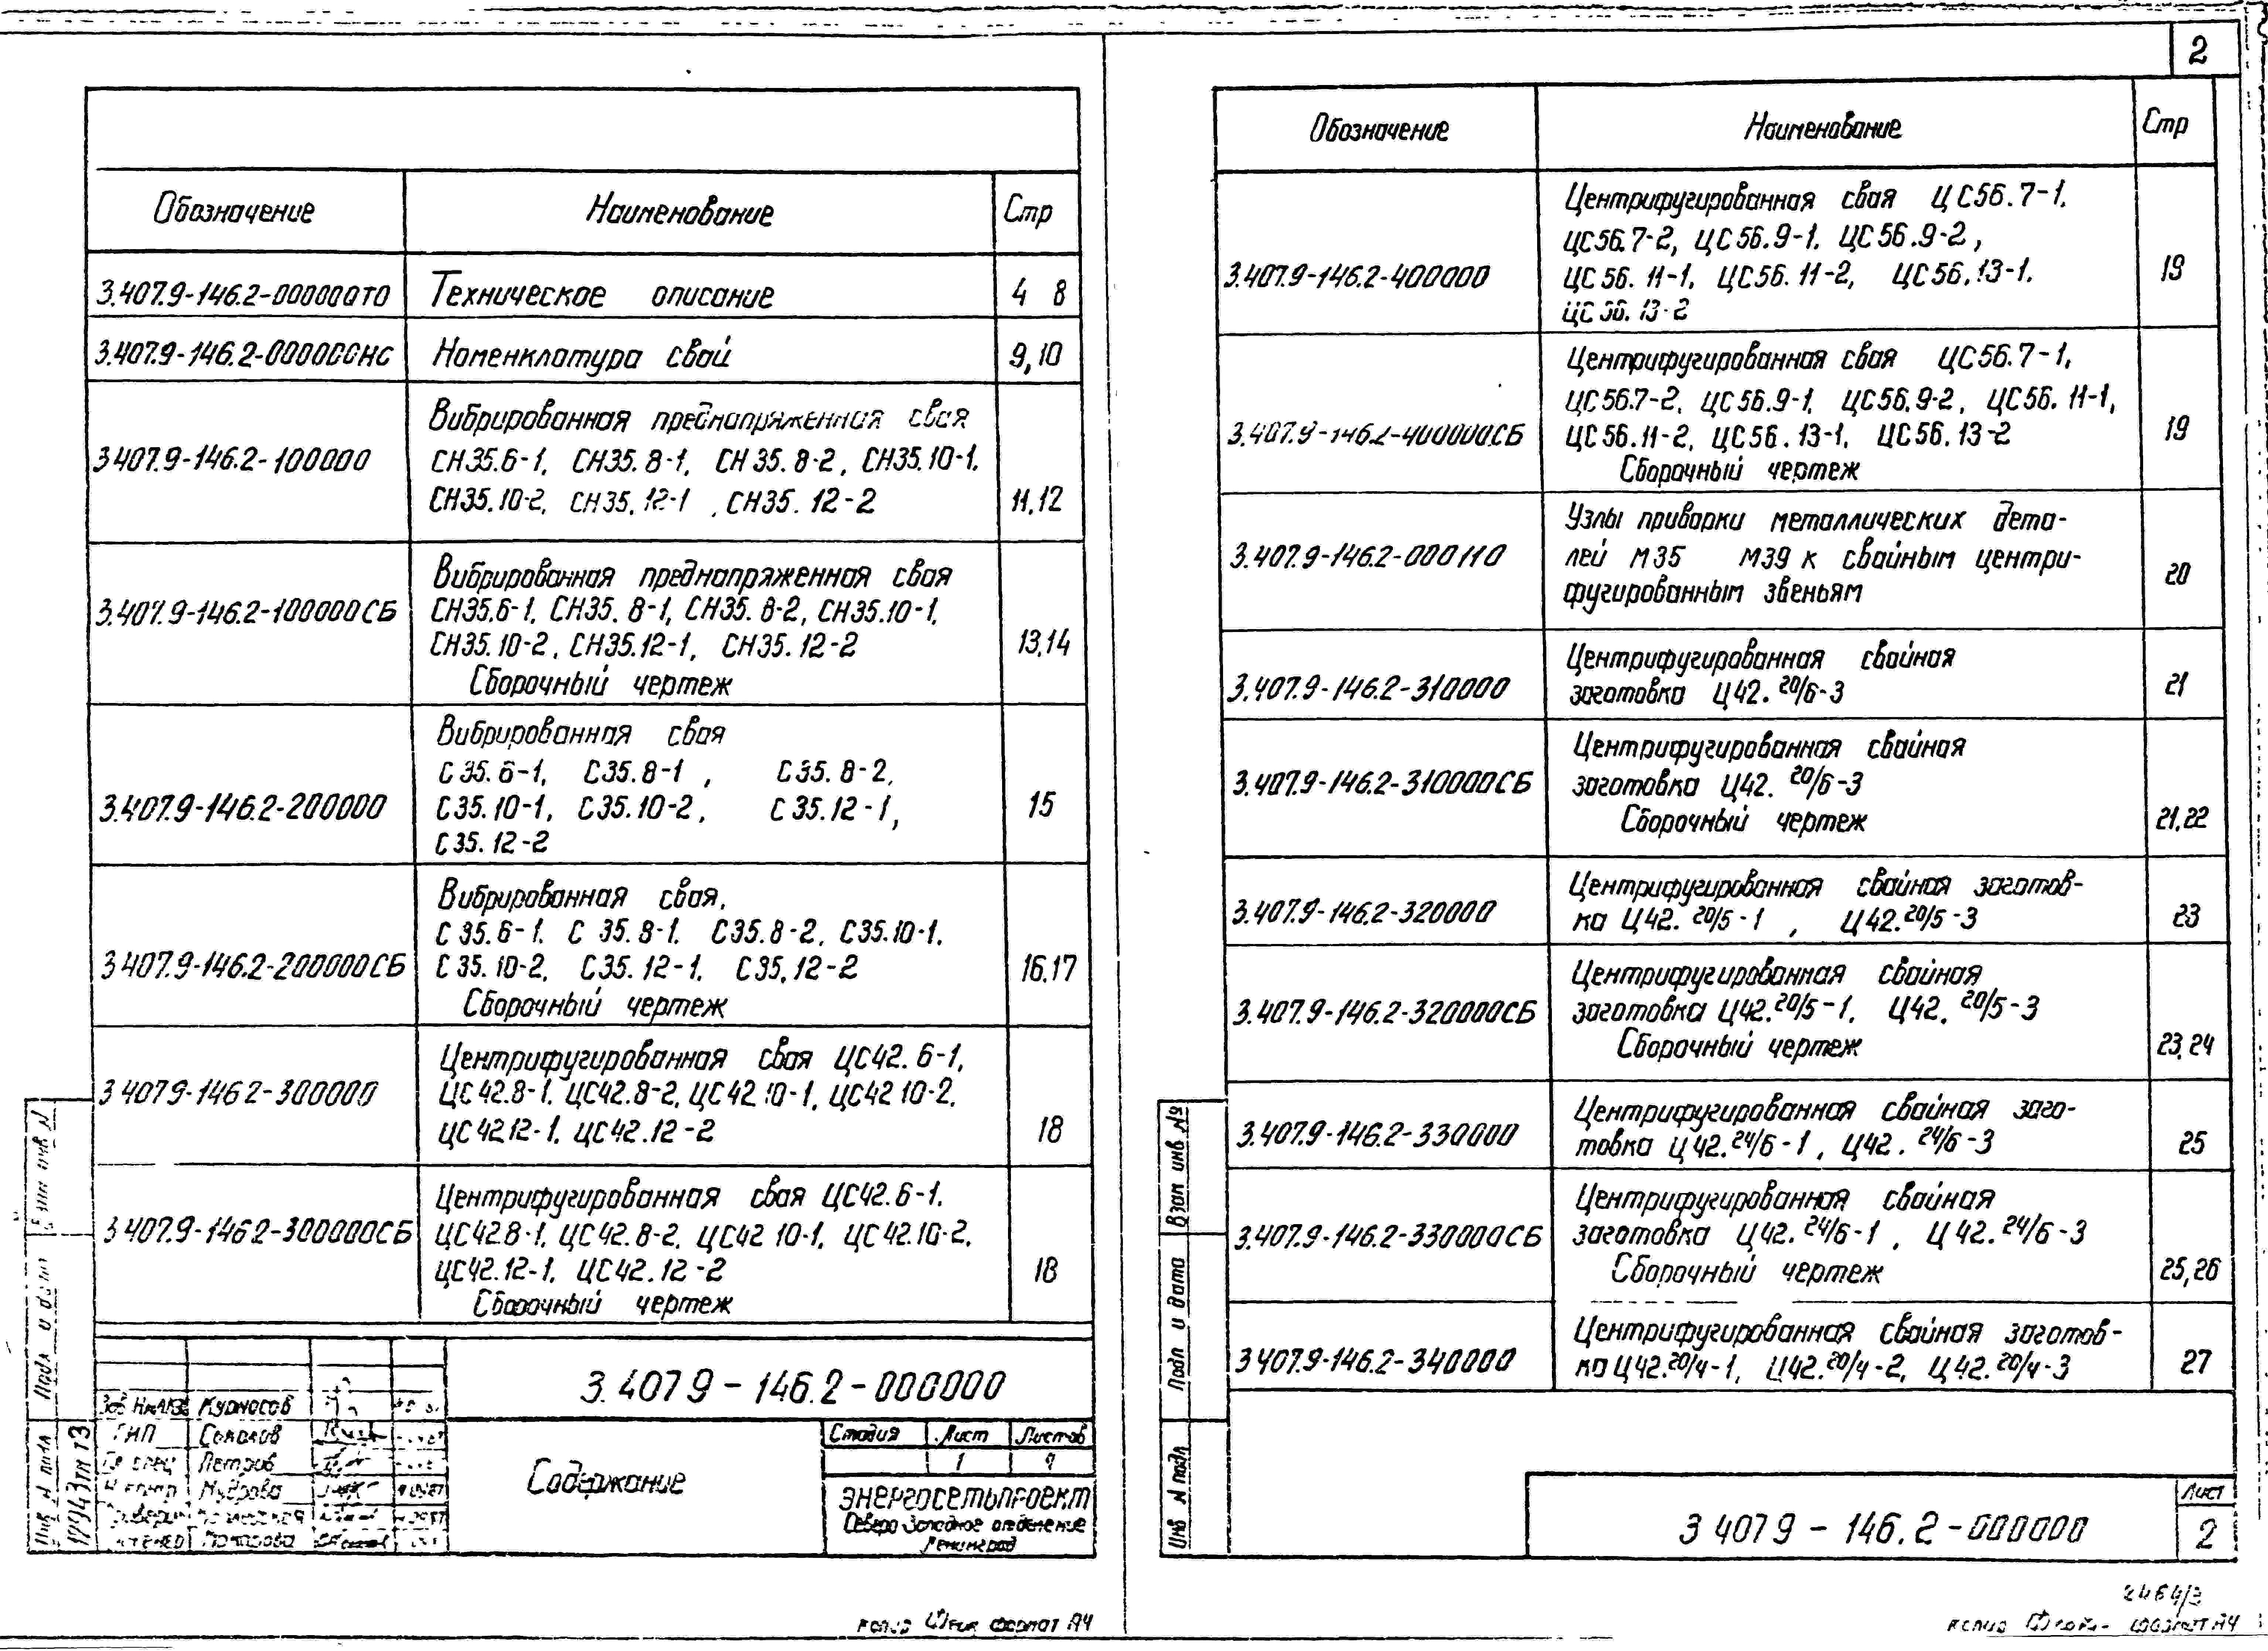 2
Обозначение Наименование Стр
3.407.9-146.2-000000ТО Техническое описание 4 8
3.407.9-146.2-000000НС Номенклатура свай 9,10
3.407.9-146.2-100000 Вибрированная преднапряженная свая
СН35.6-1, СН35.8-1, СН35.8-2, СН35.10-1,
СН35.10-2, СН35.12-1, СН35.12-2 11,12
3.407.9-146.2-100000СБ Вибрированная преднапряженная свая
СН35.6-1, СН35.8-1, СН35.8-2, СН35.10-1,
СН35.10-2, СН35.12-1, СН35.12-2 13,14
Сборочный чертеж
3.407.9-146.2-200000 Вибрированная свая
С35.6-1, С35.8-1, С35.8-2,
С35.10-1, С35.10-2, С35.12-1, 15
С35.12-2
3.407.9-146.2-200000СБ Вибрированная свая.
С35.6-1, С35.8-1, С35.8-2, С35.10-1,
С35.10-2, С35.12-1, С35.12-2 16,17
Сборочный чертеж
3.407.9-146.2-300000 Центрифугированная свая ЦС42.6-1,
ЦС42.8-1, ЦС42.8-2, ЦС42.10-1, ЦС42.10-2,
ЦС42.12-1, ЦС42.12-2 18
3.407.9-146.2-300000СБ Центрифугированная свая ЦС42.6-1,
ЦС42.8-1, ЦС42.8-2, ЦС42.10-1, ЦС42.10-2,
ЦС42.12-1, ЦС42.12-2 18
Сборочный чертеж
3.407.9-146.2-000000
Курносов
ГИП Соколов
Гл спец Петров
Н контр Мудрова
Содержание
Стадия Лист Листов
1
ЭНЕРГОСЕТЬПРОЕКТ
Северо-Западное отделение
Ленинград
Инв N подл
Подп и дата
Взам инв N
копир формат А4
Обозначение Наименование Стр
3.407.9-146.2-400000 Центрифугированная свая ЦС56.7-1,
ЦС56.7-2, ЦС56.9-1, ЦС56.9-2,
ЦС56.11-1, ЦС56.11-2, ЦС56.13-1, 19
ЦС56.13-2
3.407.9-146.2-400000СБ Центрифугированная свая ЦС56.7-1,
ЦС56.7-2, ЦС56.9-1, ЦС56.9-2, ЦС56.11-1,
ЦС56.11-2, ЦС56.13-1, ЦС56.13-2 19
Сборочный чертеж
3.407.9-146.2-000110 Узлы приварки металлических дета-
лей М35 М39 к свайным центри-
фугированным звеньям 20
3.407.9-146.2-310000 Центрифугированная свайная
заготовка Ц42.20/6-3 21
3.407.9-146.2-310000СБ Центрифугированная свайная
заготовка Ц42.20/6-3
Сборочный чертеж 21,22
3.407.9-146.2-320000 Центрифугированная свайная заготов-
ка Ц42.20/5-1, Ц42.20/5-3 23
3.407.9-146.2-320000СБ Центрифугированная свайная
заготовка Ц42.20/5-1, Ц42.20/5-3
Сборочный чертеж 23,24
3.407.9-146.2-330000 Центрифугированная свайная заго-
товка Ц42.24/6-1, Ц42.24/6-3 25
3.407.9-146.2-330000СБ Центрифугированная свайная
заготовка Ц42.24/6-1, Ц42.24/6-3
Сборочный чертеж 25,26
3.407.9-146.2-340000 Центрифугированная свайная заготов-
ка Ц42.20/4-1, Ц42.20/4-2, Ц42.20/4-3 27
Взам инв №
Подп и дата
Инв N подл
3.407.9-146.2-000000
Лист
2
2464/3
копир формат А4